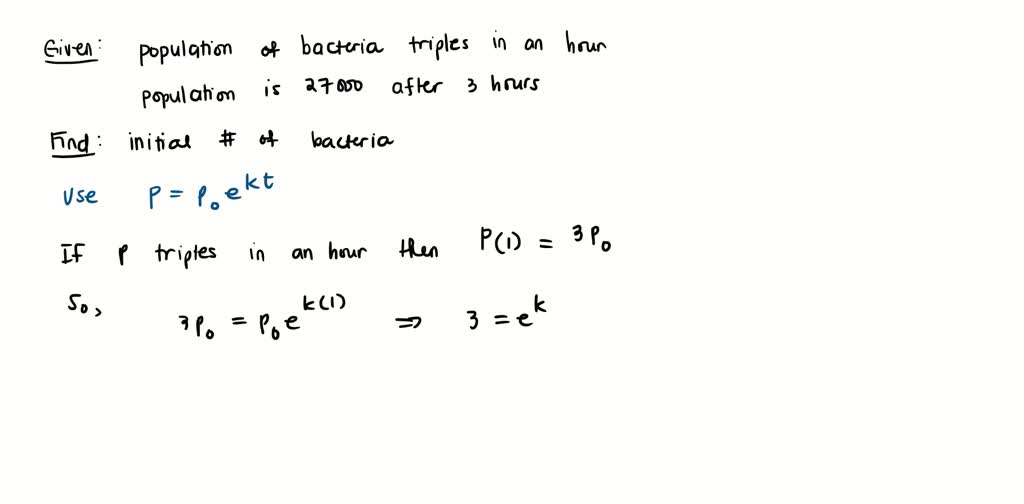 Given: population of bacteria triples in an hour
population is 27000 after 3 hours
Find: initial # of bacteria
Use P = P₀e^{kt}
If P triples in an hour then P(1) = 3P₀
So, 3P₀ = P₀e^{k(1)} ⇒ 3 = e^k